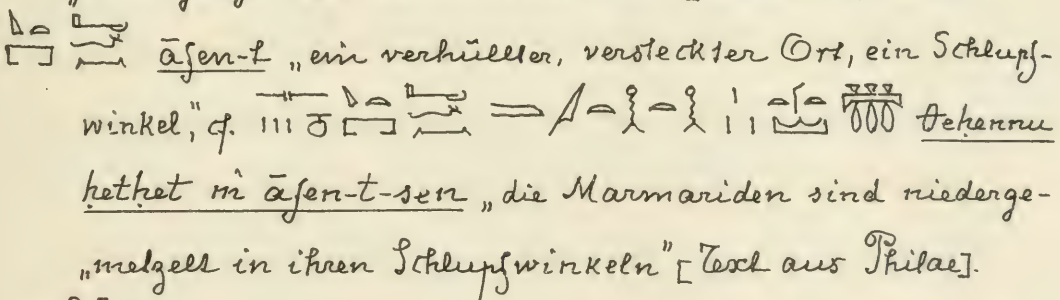 āfen-t „ein verhüllter, versteckter Ort, ein Schlupf-
winkel,“ cf. tehennu
ḥetḥet m̀ āfen-t-sen „die Marmariden sind niederge-
„metzelt in ihren Schlupfwinkeln“ [Text aus Philae].